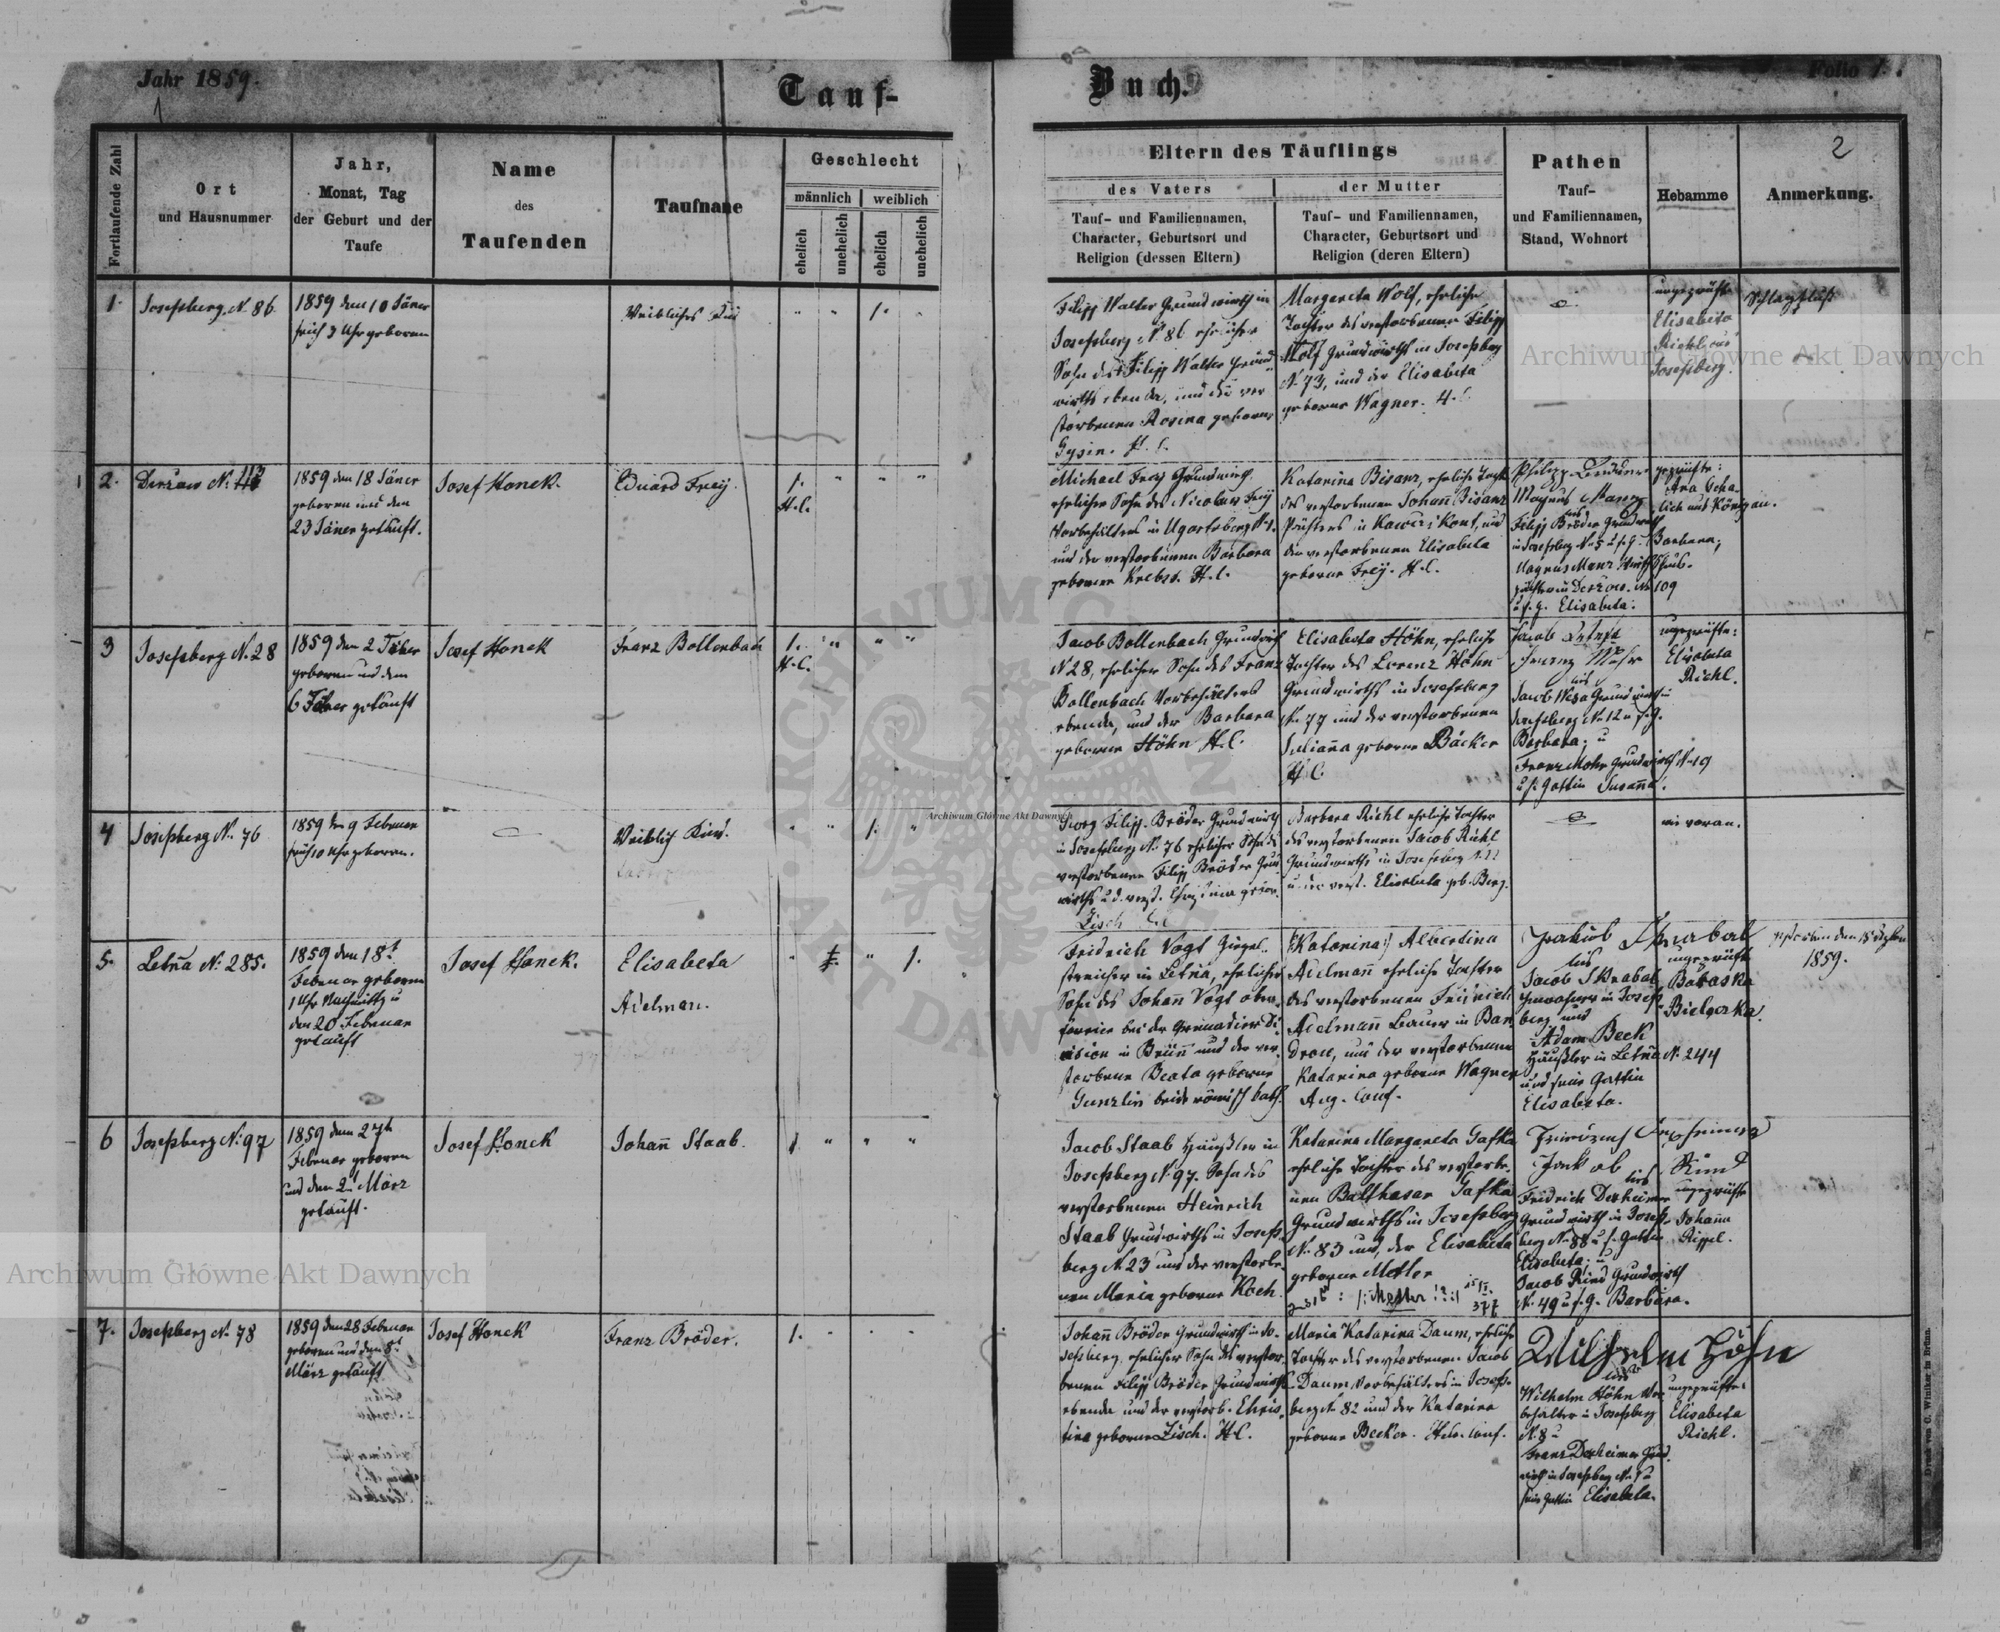 Jahr 1859.
Tauf-
Buch.
Folio 1.
2
Fortlaufende Zahl
Ort
und Hausnummer
Jahr,
Monat, Tag
der Geburt und der
Taufe
Name
des
Taufenden
Taufname
Geschlecht
männlich
weiblich
ehelich
unehelich
ehelich
unehelich
Eltern des Täuflings
des Vaters
Tauf- und Familiennamen,
Character, Geburtsort und
Religion (dessen Eltern)
der Mutter
Tauf- und Familiennamen,
Character, Geburtsort und
Religion (deren Eltern)
Pathen
Tauf-
und Familiennamen,
Stand, Wohnort
Hebamme
Anmerkung.
1.
Josefsberg N. 86
1859 den 10 Jäner
früh 3 Uhr geboren
Weibliches
1.
Filipp Walter Grundwirth in
Josefsberg N. 86 ehelicher
Sohn des Filipp Walter Grund
wirths ebenda, und der ver
storbenen Rosina geborne
Gysin. H. C.
Margareta Wolf, eheliche
Tochter des verstorbenen Filipp
Wolf Grundwirths in Josefsberg
N. 73, und der Elisabeta
geborne Wagner. H. C.
ungeprüfte
Elisabeta
Riehl aus
Josefsberg.
Schlagfluß
2.
N. 113
1859 den 18 Jäner
geboren und den
23 Jäner getauft.
Josef Honek.
Eduard Frey.
1.
H. C.
Michael Frey Grundwirth
ehelicher Sohn des Nicolaus Frey
Vorbehälters in Ugartsberg
und der verstorbenen Barbara
geborne Krebs. H. C.
Katarina Bisanz, eheliche Tocht
des verstorbenen Johann Bisanz
Pächters in und
der verstorbenen Elisabeta
geborne Frey. H. C.
Magnus Manz
Filipp Bröder Grundwirth
in Josefsberg N. 5 u. s. G.
Barbara;
Magnus Manz
109
u. s. g. Elisabeta.
geprüfte:
Ana
aus Königsau.
3
Josefsberg N. 28
1859 den 2
geboren und den
6 getauft
Josef Honek
Franz Bollenbach
1.
H. C.
Jacob Bollenbach Grundwirth
N 28, ehelicher Sohn des Franz
Bollenbach Vorbehälters
ebenda, und der Barbara
geborne Höhn H. C.
Elisabeta Höhn, eheliche
Tochter des Lorenz Höhn
Grundwirths in Josefsberg
N. 77 und der verstorbenen
Julianna geborne Bäcker
H. C.
Jacob
Franz Mohr
Jacob Grundwirth in
Josefsberg N. 12 u. s. g.
Barbara; u
Franz Mohr Grundwirth N. 19
u. s. Gattin Susanna.
ungeprüfte:
Elisabeta
Riehl.
4
Josefsberg N. 76
1859 den 9 Februar
früh 10 Uhr geboren.
Weiblich Kind.
1.
Georg Filipp Bröder Grundwirth
in Josefsberg N. 76 ehelicher Sohn des
verstorbenen Filipp Bröder Grund
wirths u. d. verst. Christina gebor.
Zisch H. C.
Barbara Riehl eheliche Tochter
des verstorbenen Jacob Riehl
Grundwirths in Josefsberg
u. der verst. Elisabeta geb. Berg.
wie voran.
5.
Letnia N. 285.
1859 den 18t
Februar geboren
1 Uhr Nachmittg u
den 20 Februar
getauft
Josef Honek.
Elisabeta
Adelman.
1.
Fridrich Vogt Ziegel-
streicher in Letnia, ehelicher
Sohn des Johann Vogt
bei der Grenadier Di
vision in Brünn und der ver
storbene Beata geborne
Gunzlin beide römisch kath.
(:Katarina:) Albertina
Adelmann eheliche Tochter
des verstorbenen Fridrich
Adelmann Bauer in Ban
drow, und der verstorbenen
Katarina geborne Wagner
Aug. Conf.
Jakób Skrabal
Jacob Skrabal
Inwohner in Josefs-
berg und
Adam Beck
Häußler in Letnia N. 244
und seine Gattin
Elisabeta.
ungeprüfte
Baraska
Bielaska.
gestorben den 18
1859.
6
Josefsberg N. 97
1859 den 27t
Februar geboren
und den 2 März
getauft.
Josef Honek
Johann Staab.
1
Jacob Staab Häußler in
Josefsberg N. 97. Sohn des
verstorbenen Heinrich
Staab Grundwirths in Josefs-
berg N. 23 und der verstorbe-
nen Maria geborne Koch.
Katarina Margareta Gafka
eheliche Tochter des verstorbe-
nen Balthasar Gafka
Grundwirths in Josefsberg
N. 83 und der Elisabeta
geborne
377
Jakob Rind
Fridrich Dexheimer
Grundwirth in Josefs-
berg N. 88 u. s. Gattin
Elisabeta; u
Jacob Rind Grundwirth
N. 49 u. s. G. Barbara.
ungeprüfte
Johanna
Rippel.
7.
Josefsberg N. 78
1859 den 28 Februar
geboren und den
März getauft
Josef Honek
Franz Bröder.
1.
Johann Bröder Grundwirth in Jo-
sefsberg, ehelicher Sohn des verstor-
benen Filipp Bröder Grundwirths
ebenda und der verstorb. Chris-
tina geborne Zisch. H. C.
Maria Katarina Daum, eheliche
Tochter des verstorbenen Jacob
Daum Vorbehälters in Josefs-
berg N. 82 und der Katarina
geborne Becker. Helv. Conf.
Wilhelm Höhn
Wilhelm Höhn Vor-
behälter in Josefsberg
N. 8 u
Franz Dexheimer Grund
wirth in Josefsberg N. u
seine Gattin Elisabeta.
ungeprüfte:
Elisabeta
Riehl.
Druck von C. Winiker in Brünn.
Archiwum Główne Akt Dawnych
Archiwum Główne Akt Dawnych
Archiwum Główne Akt Dawnych